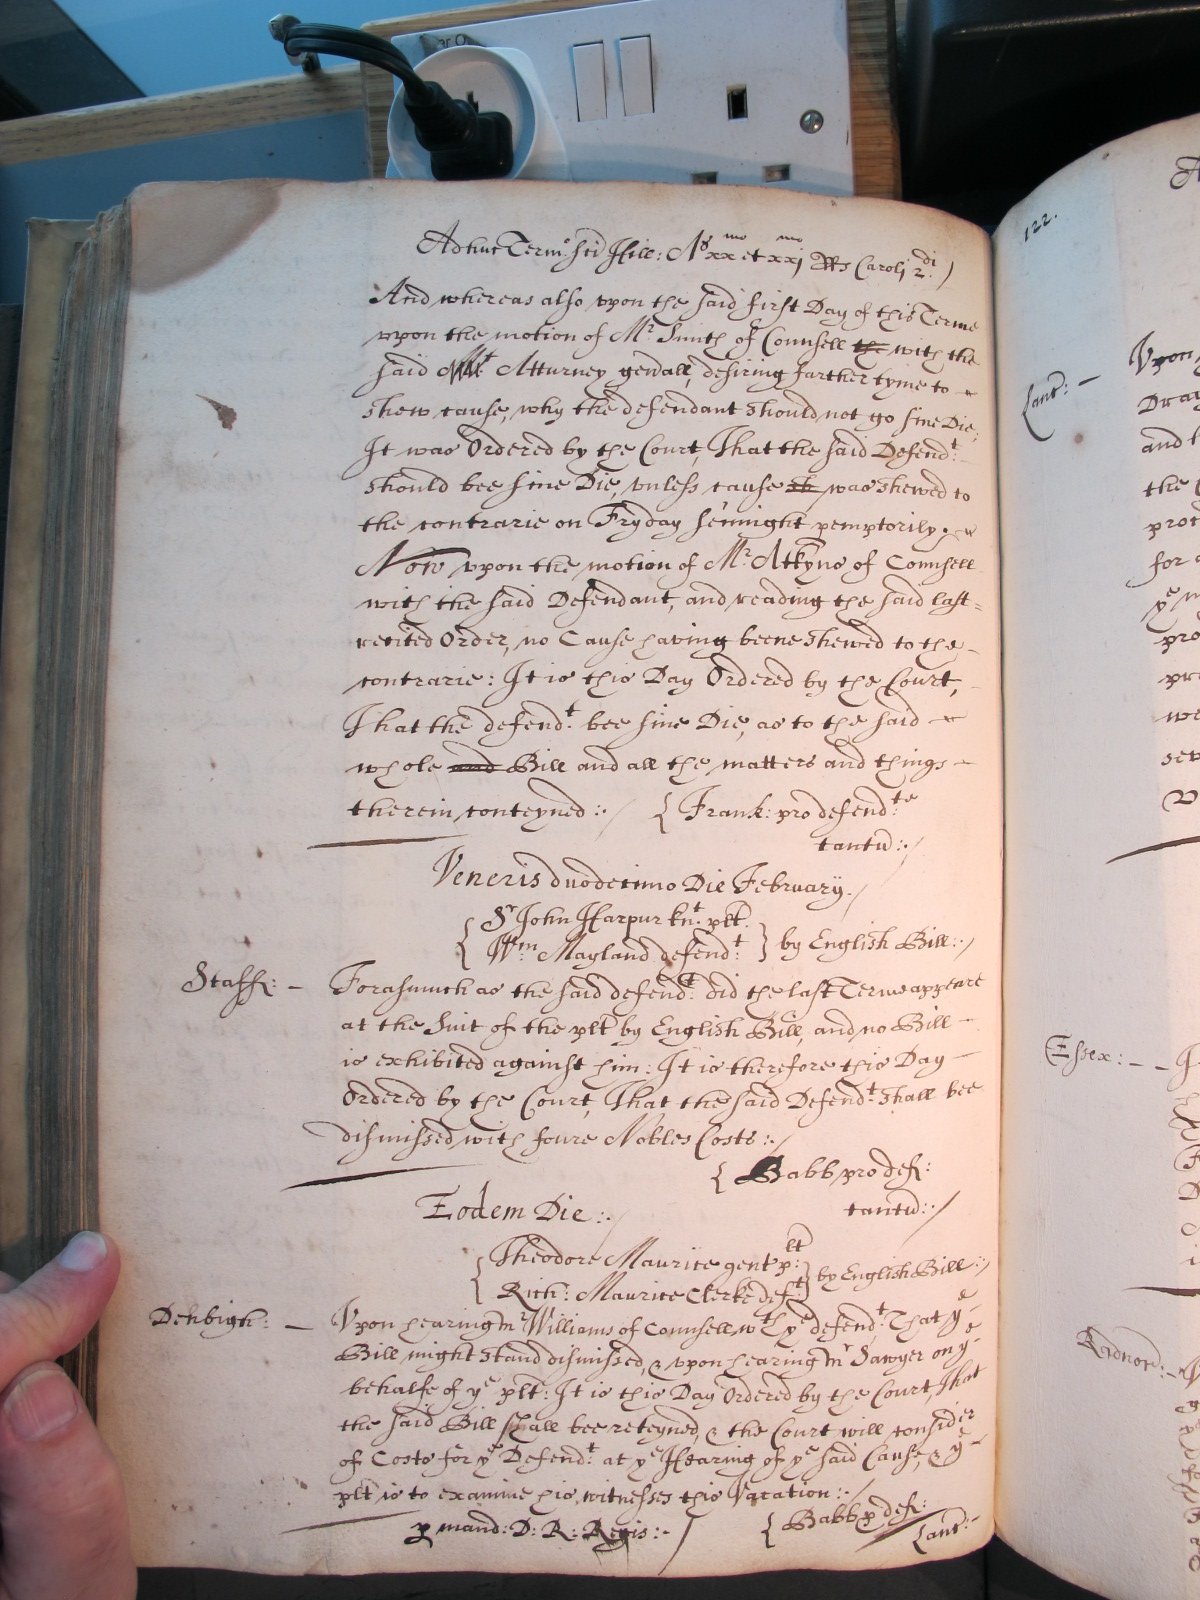 Adhuc Term.º Sti Hill: Aº xxmo et xxjmo RRs Caroli 2di /
And whereas also vpon the said first Day of this Terme
vpon the motion of Mr. Smith of Counsell the with the
said Atturney gen̄all, desiring farther tyme to
shew cause, why the defendant should not go sine Die,
It was Ordered by the Court, That the said Defend.t
should bee sine Die, vnless cause sh was shewed to
the contrarie on Fryday sennight pemptorily.
Now vpon the motion of Mr. Atkyns of Counsell
with the said Defendant, and reading the said last=
recited Order, no Cause having beene shewed to the
contrarie: It is this Day Ordered by the Court,
That the defend.t bee sine Die, as to the said
whole and Bill and all the matters and things
therein conteyned :. / { Frank: pro defend:te
tantū :. /
Veneris duodecimo Die February. /
{ Sr John Harpur kn.t plt.
Wm. Mayland defend.t } by English Bill :. /
Staff: - Forasmuch as the said defend.t did the last Terme appeare
at the Suit of the plt by English Bill, and no Bill
is exhibited against him: It is therefore this Day
Ordered by the Court, That the said Defend.t shall bee
dismissed with foure Nobles Costs :. /
{ Babb pro def:
tantū :. /
Eodem Die :. /
{ Theodore Maurice gent plt:
Rich: Maurice Clerke deft } by English Bill :. /
Denbigh: - Vpon hearing mr Williams of Counsell wth ye defend.t That ye
Bill might stand dismissed, & vpon hearing mr Sawyer on ye
behalfe of ye plt: It is this Day Ordered by the Court, That
the said Bill shall bee reteyned, & the Court will consider
of Costs for ye Defend.t at ye Hearing of ye said Cause, & ye
plt is to examine his witnesses this Vacation :. /
p mand: D: R: Regis :- / { Babb p def:
Lanc:-
122.
Lanc: -
Vpon
Dray
and
the
for
ye
we
Essex: - -
Radnor: -